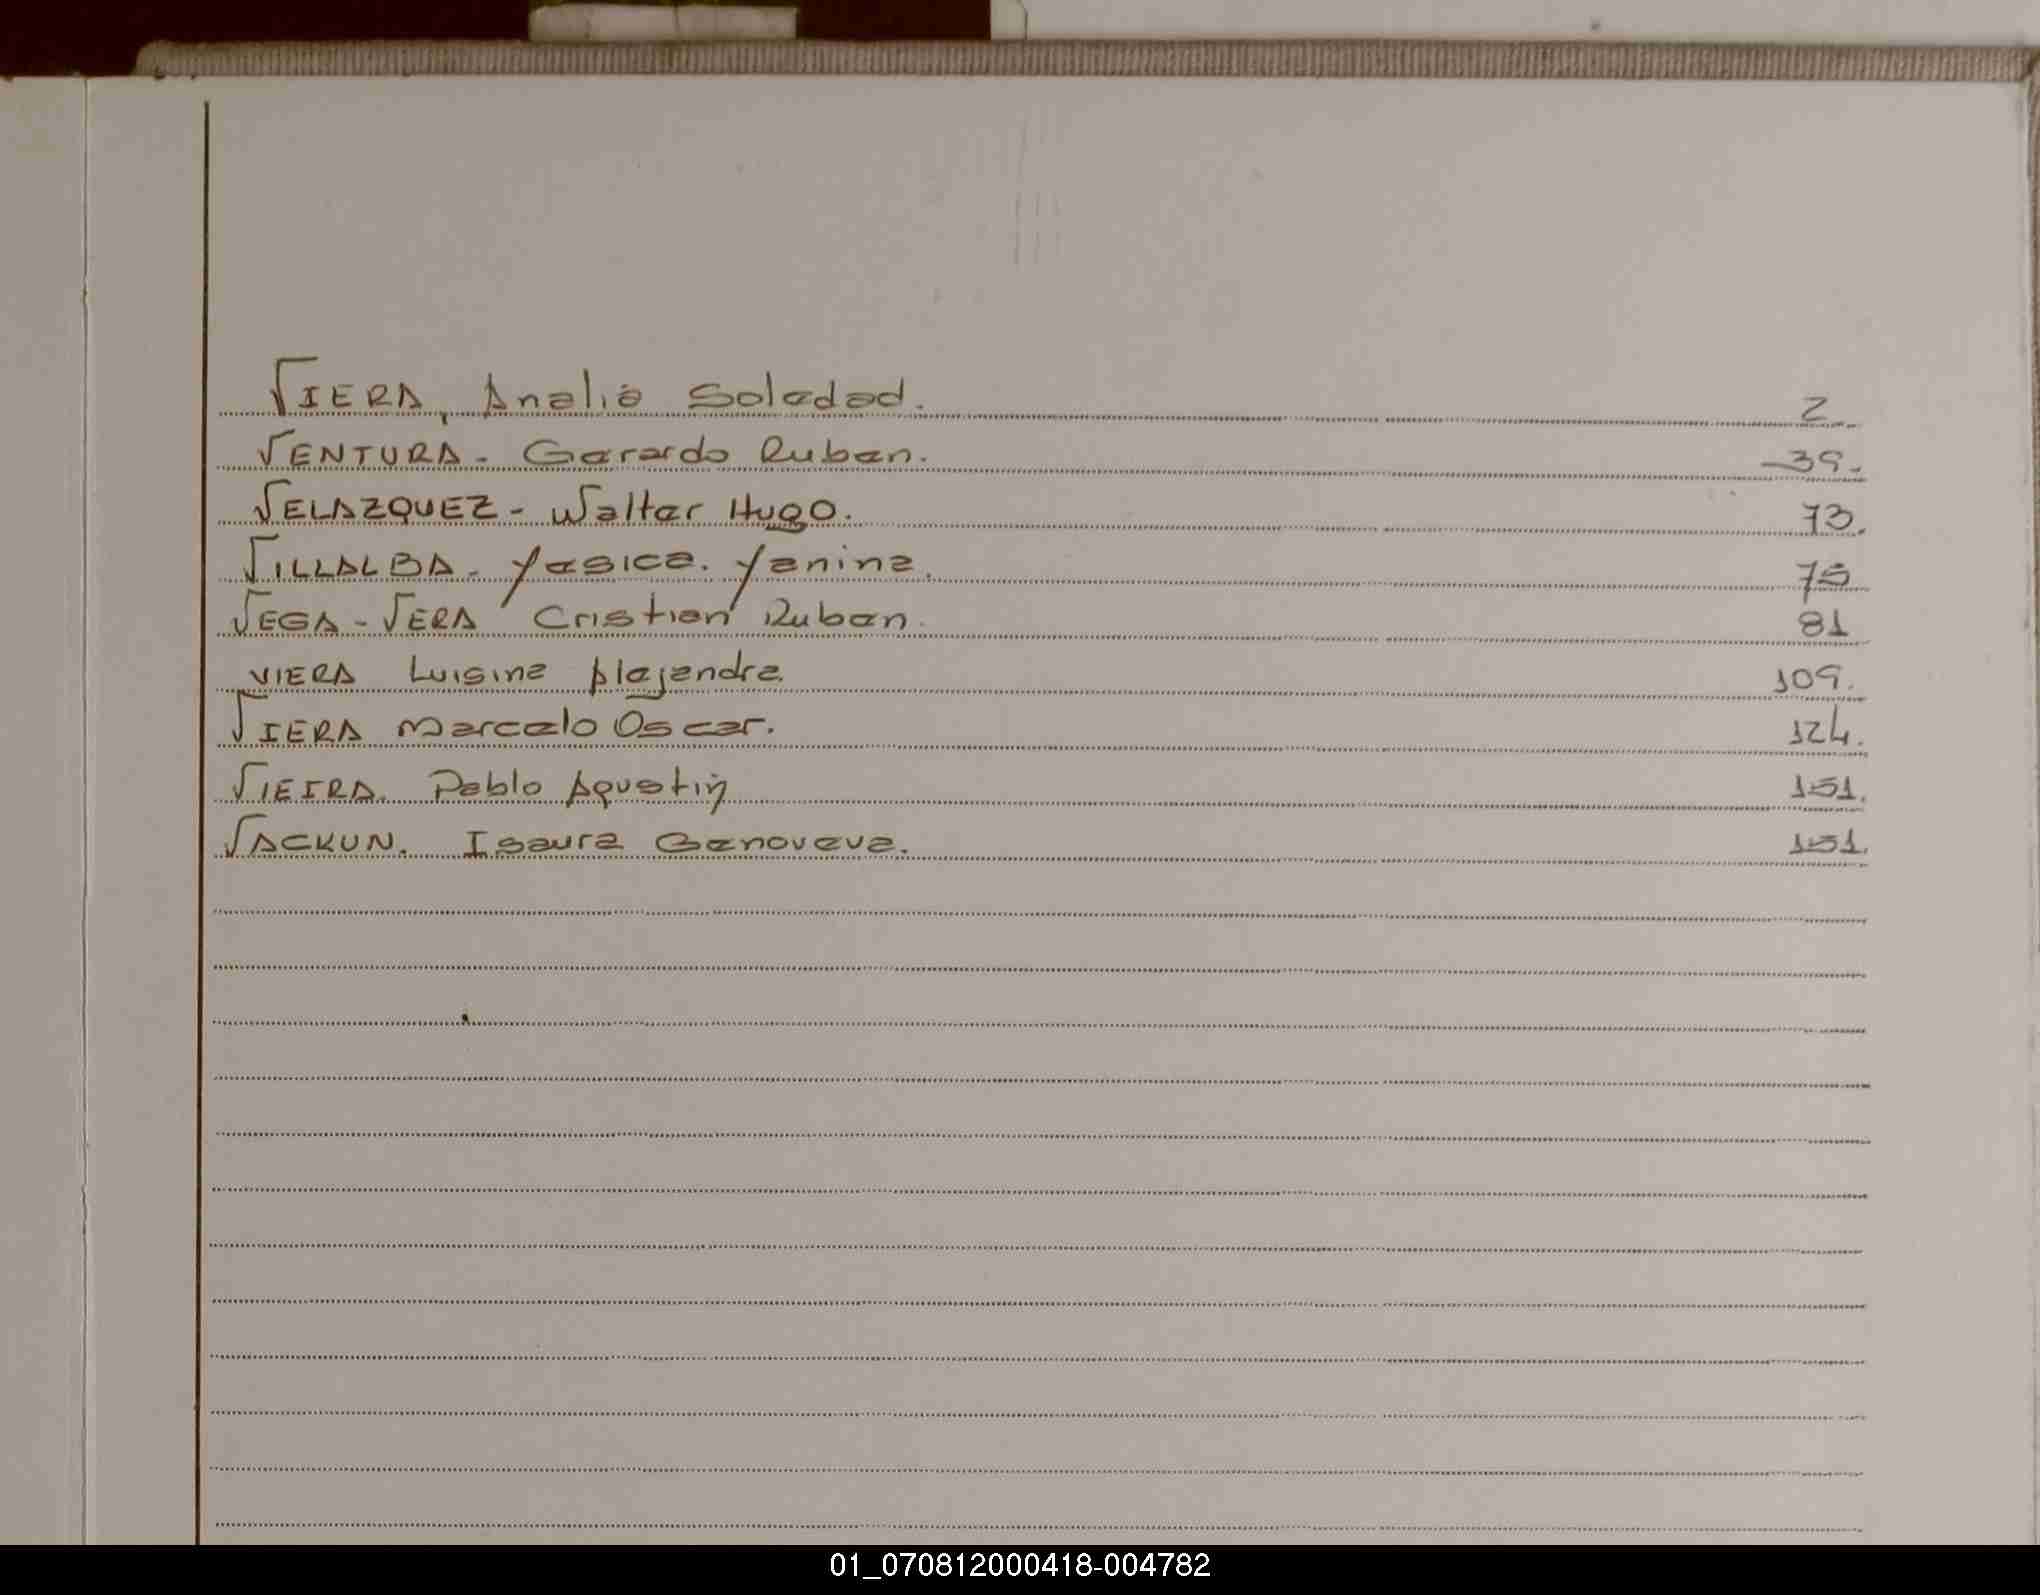 VIERA, Analia Soledad. 2
VENTURA - Gerardo Ruben. 39.
VELAZQUEZ - Walter Hugo. 73.
VILLALBA - Yesica. Yanina. 75
VEGA - VERA Cristian Ruben. 81
VIERA Luisina Alejandra. 109.
VIERA Marcelo Oscar. 124.
VIEIRA. Pablo Agustin 151.
VACKUN. Isaura Genoveva. 151.
01_070812000418-004782